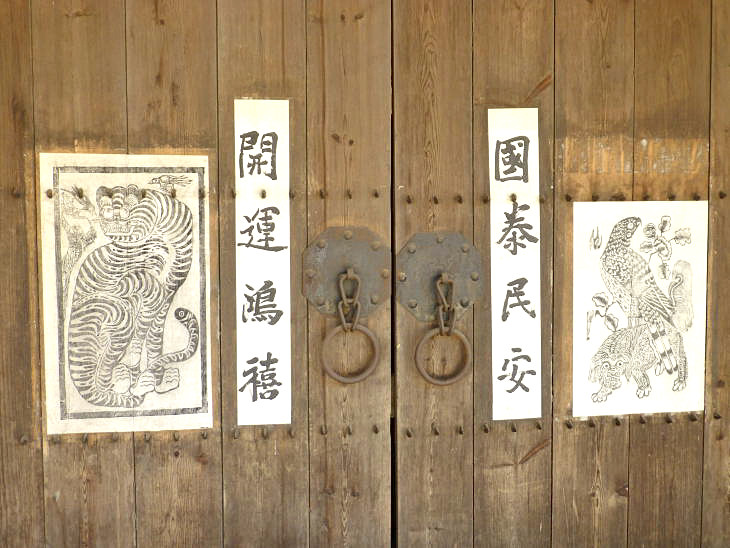 國泰民安
開運鴻禧